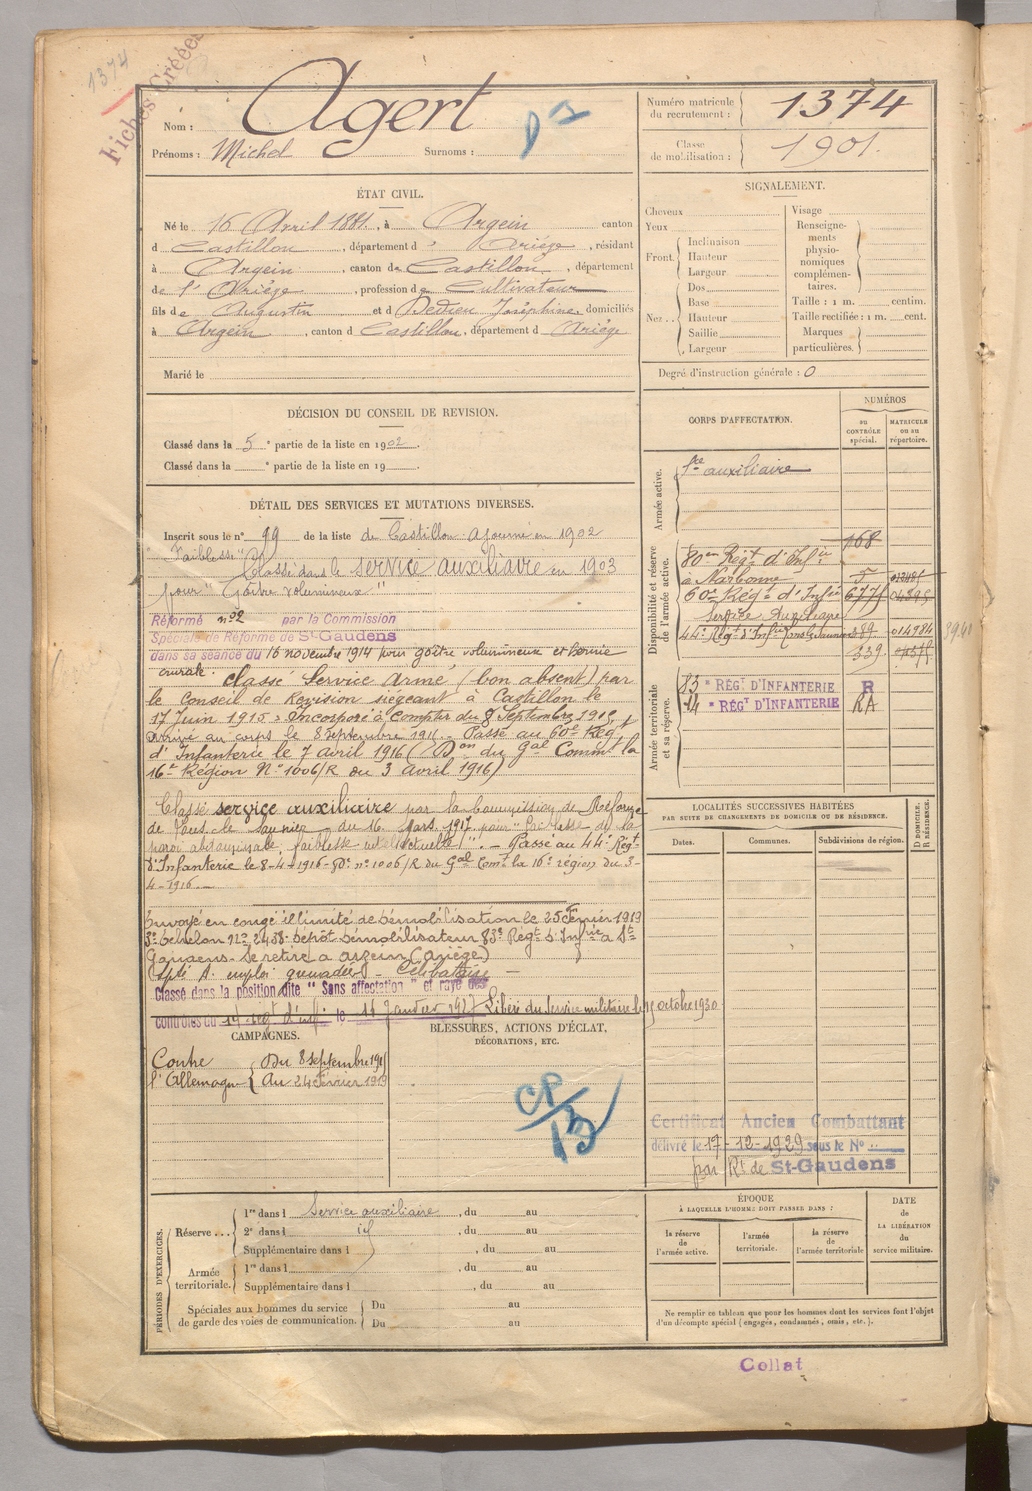 1374
Fiches Créées
Nom : Agert
Prénoms : Michel Surnoms :
Numéro matricule du recrutement : 1374
Classe de mobilisation : 1901.
ÉTAT CIVIL.
Né le 16 Avril 1881, à Argein canton
d Castillon, département d' Ariège, résidant
à Argein, canton de Castillon, département
de l'Ariège, profession de Cultivateur
fils de Augustin et d Dedieu Joséphine domiciliés
à Argein, canton d Castillon, département d Ariège
Marié le
SIGNALEMENT.
Cheveux
Yeux
Front. Inclinaison
Hauteur
Largeur
Nez .. Dos
Base
Hauteur
Saillie
Largeur
Visage
Renseigne-
ments
physio-
nomiques
complémen-
taires.
Taille : 1 m. centim.
Taille rectifiée : 1 m. cent.
Marques
particulières.
Degré d'instruction générale : 0
DÉCISION DU CONSEIL DE REVISION.
Classé dans la 5e partie de la liste en 1902.
Classé dans la e partie de la liste en 19
DÉTAIL DES SERVICES ET MUTATIONS DIVERSES.
Inscrit sous le n° 99 de la liste de Castillon ajourné en 1902
"Faiblesse" Classé dans le service auxiliaire en 1903
pour "Goître volumineux"
Réformé n°2 par la Commission
Spéciale de Réforme de St-Gaudens
dans sa séance du 16 novembre 1914 pour goître volumineux et hernie
crurale. Classé Service Armé (bon absent) par
le Conseil de Révision siégeant à Castillon le
17 Juin 1915. Incorporé à Compter du 8 Septembre 1915,
Arrivé au corps le 8 septembre 1915. Passé au 60e Rég.
d'Infanterie le 7 avril 1916 (Don du Gal Commt la
16e Région N° 1006/R du 3 avril 1916)
Classé service auxiliaire par la Commission de Réforme
de Lons-le-Saunier du 16 Mars 1917 pour "Faiblesse de la
paroi abdominale, faiblesse intellectuelle". - Passé au 44e Régt
d'Infanterie le 8-4-1916 - n° 1006/R du Gal Comt la 16e région du 3-
4-1916.
Envoyé en congé illimité de démobilisation le 25 Février 1919
3e échelon n° 2458 dépôt démobilisateur 83e Régt d'Infrie à St
Gaudens. Se retire à Argein (Ariège)
Célibataire
Classé dans la position dite " Sans affectation " et rayé des
contrôles du 14e régt d'inf. le 14 Janvier 1927 Libéré du Service militaire le 15 octobre 1930
CORPS D'AFFECTATION.
NUMÉROS
DU CONTRÔLE spécial.
MATRICULE ou au répertoire.
Armée active.
Sce auxiliaire
168
Disponibilité et réserve de l'armée active.
80em Régt d'Infie
à Narbonne 5 013485
60e Régt d'Infie 6775 04395
Service Auxiliaire
44e Régt d'Infie Lons le Saunier 389 014984
339
Armée territoriale et sa réserve.
83e RÉGT D'INFANTERIE R
14e RÉGT D'INFANTERIE RA
LOCALITÉS SUCCESSIVES HABITÉES
PAR SUITE DE CHANGEMENTS DE DOMICILE OU DE RÉSIDENCE.
Dates. Communes. Subdivisions de région.
D DOMICILE. R RÉSIDENCE.
CAMPAGNES.
Contre l'Allemagne
Du 8 septembre 1915
Au 24 février 1919
BLESSURES, ACTIONS D'ÉCLAT,
DÉCORATIONS, ETC.
CP/13
Certificat Ancien Combattant
délivré le 17-12-1929 sous le N°
par Rt de St-Gaudens
PÉRIODES D'EXERCICES.
Réserve ... 1re dans l Service auxiliaire, du au
2e dans l id, du au
Supplémentaire dans l, du au
Armée territoriale. 1re dans l, du au
Supplémentaire dans l, du au
Spéciales aux hommes du service Du au
de garde des voies de communication. Du au
ÉPOQUE
À LAQUELLE L'HOMME DOIT PASSER DANS :
la réserve de l'armée active.
l'armée territoriale.
la réserve de l'armée territoriale
DATE de LA LIBÉRATION du service militaire.
Ne remplir ce tableau que pour les hommes dont les services font l'objet
d'un décompte spécial (engagés, condamnés, omis, etc.).
Collat